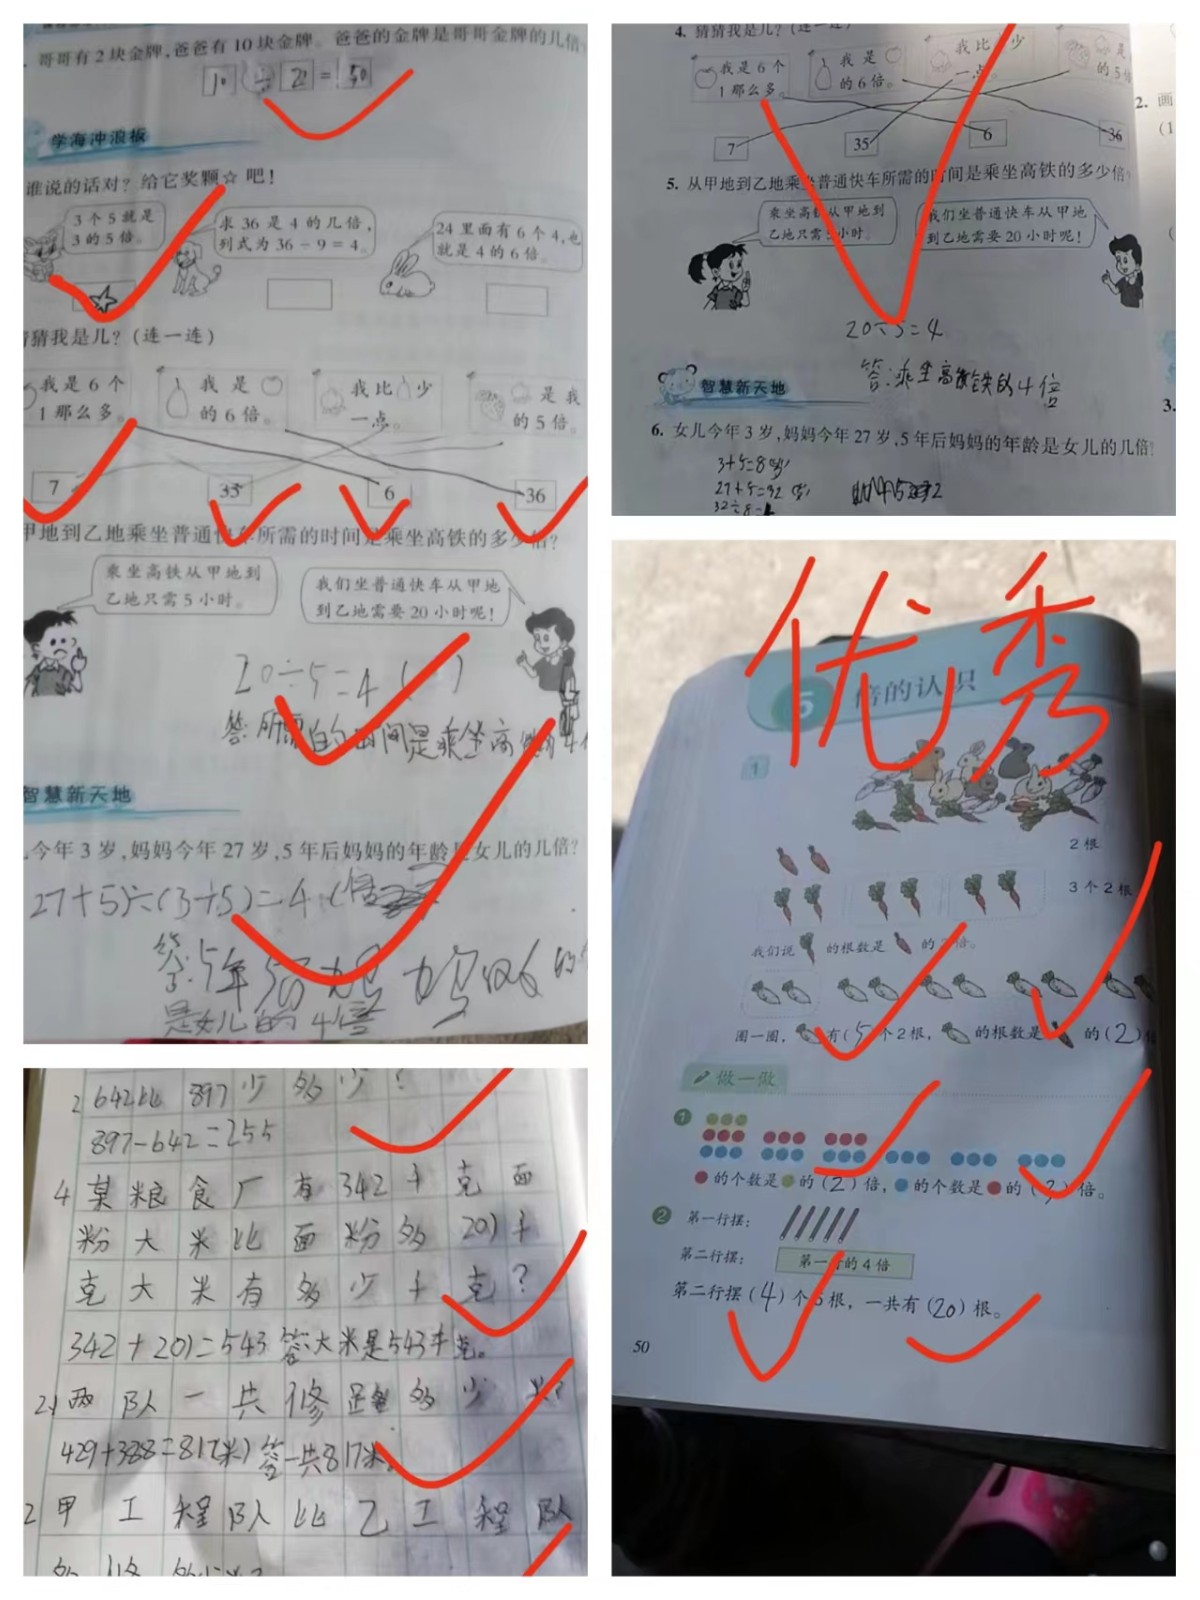 哥哥有2块金牌,爸爸有10块金牌。爸爸的金牌是哥哥金牌的几倍?
学海冲浪板
谁说的话对?给它奖颗☆吧!
3个5就是
3的5倍。
求36是4的几倍,
列式为36÷9=4。
24里面有6个4,也
就是4的6倍。
猜我是几?(连一连)
我是6个
1那么多。
我是
的6倍。
我比 少
一点。
是我
的5倍。
7
35
6
36
甲地到乙地乘坐普通快车所需的时间是乘坐高铁的多少倍?
乘坐高铁从甲地到
乙地只需5小时。
我们坐普通快车从甲地
到乙地需要20小时呢!
20÷5=4( )
答:所需的时间是乘坐高铁的4
智慧新天地
今年3岁,妈妈今年27岁,5年后妈妈的年龄是女儿的几倍?
27+5)÷(3+5)=4(倍
是女儿的4倍
4. 猜猜我是几?(连一连)
我是6个
1那么多。
我是
的6倍。
我比 少
一点。
是
的5倍
7
35
6
36
5. 从甲地到乙地乘坐普通快车所需的时间是乘坐高铁的多少倍?
乘坐高铁从甲地到
乙地只需5小时。
我们坐普通快车从甲地
到乙地需要20小时呢!
20÷5=4
答:乘坐高铁的4倍
智慧新天地
6. 女儿今年3岁,妈妈今年27岁,5年后妈妈的年龄是女儿的几倍?
3+5=8(岁)
27+5=32(岁)
2. 画
(1
3.
642比897少多少?
897-642=255
4 某粮食厂有342千克面
粉大米比面粉多201千
克大米有多少千克?
342+201=543 答:大米是543千克。
两队一共修路多少米?
429+388=817(米) 答一共817米。
2 甲工程队比乙工程队
优秀
5 倍的认识
1
2根
3个2根
我们说 的根数是 的3倍。
圈一圈, 有(5)个2根, 的根数是 的(2)倍
做一做
1
的个数是 的(2)倍, 的个数是 的(3)倍。
2 第一行摆:
第二行摆: 第一行的4倍
第二行摆(4)个5根,一共有(20)根。
50